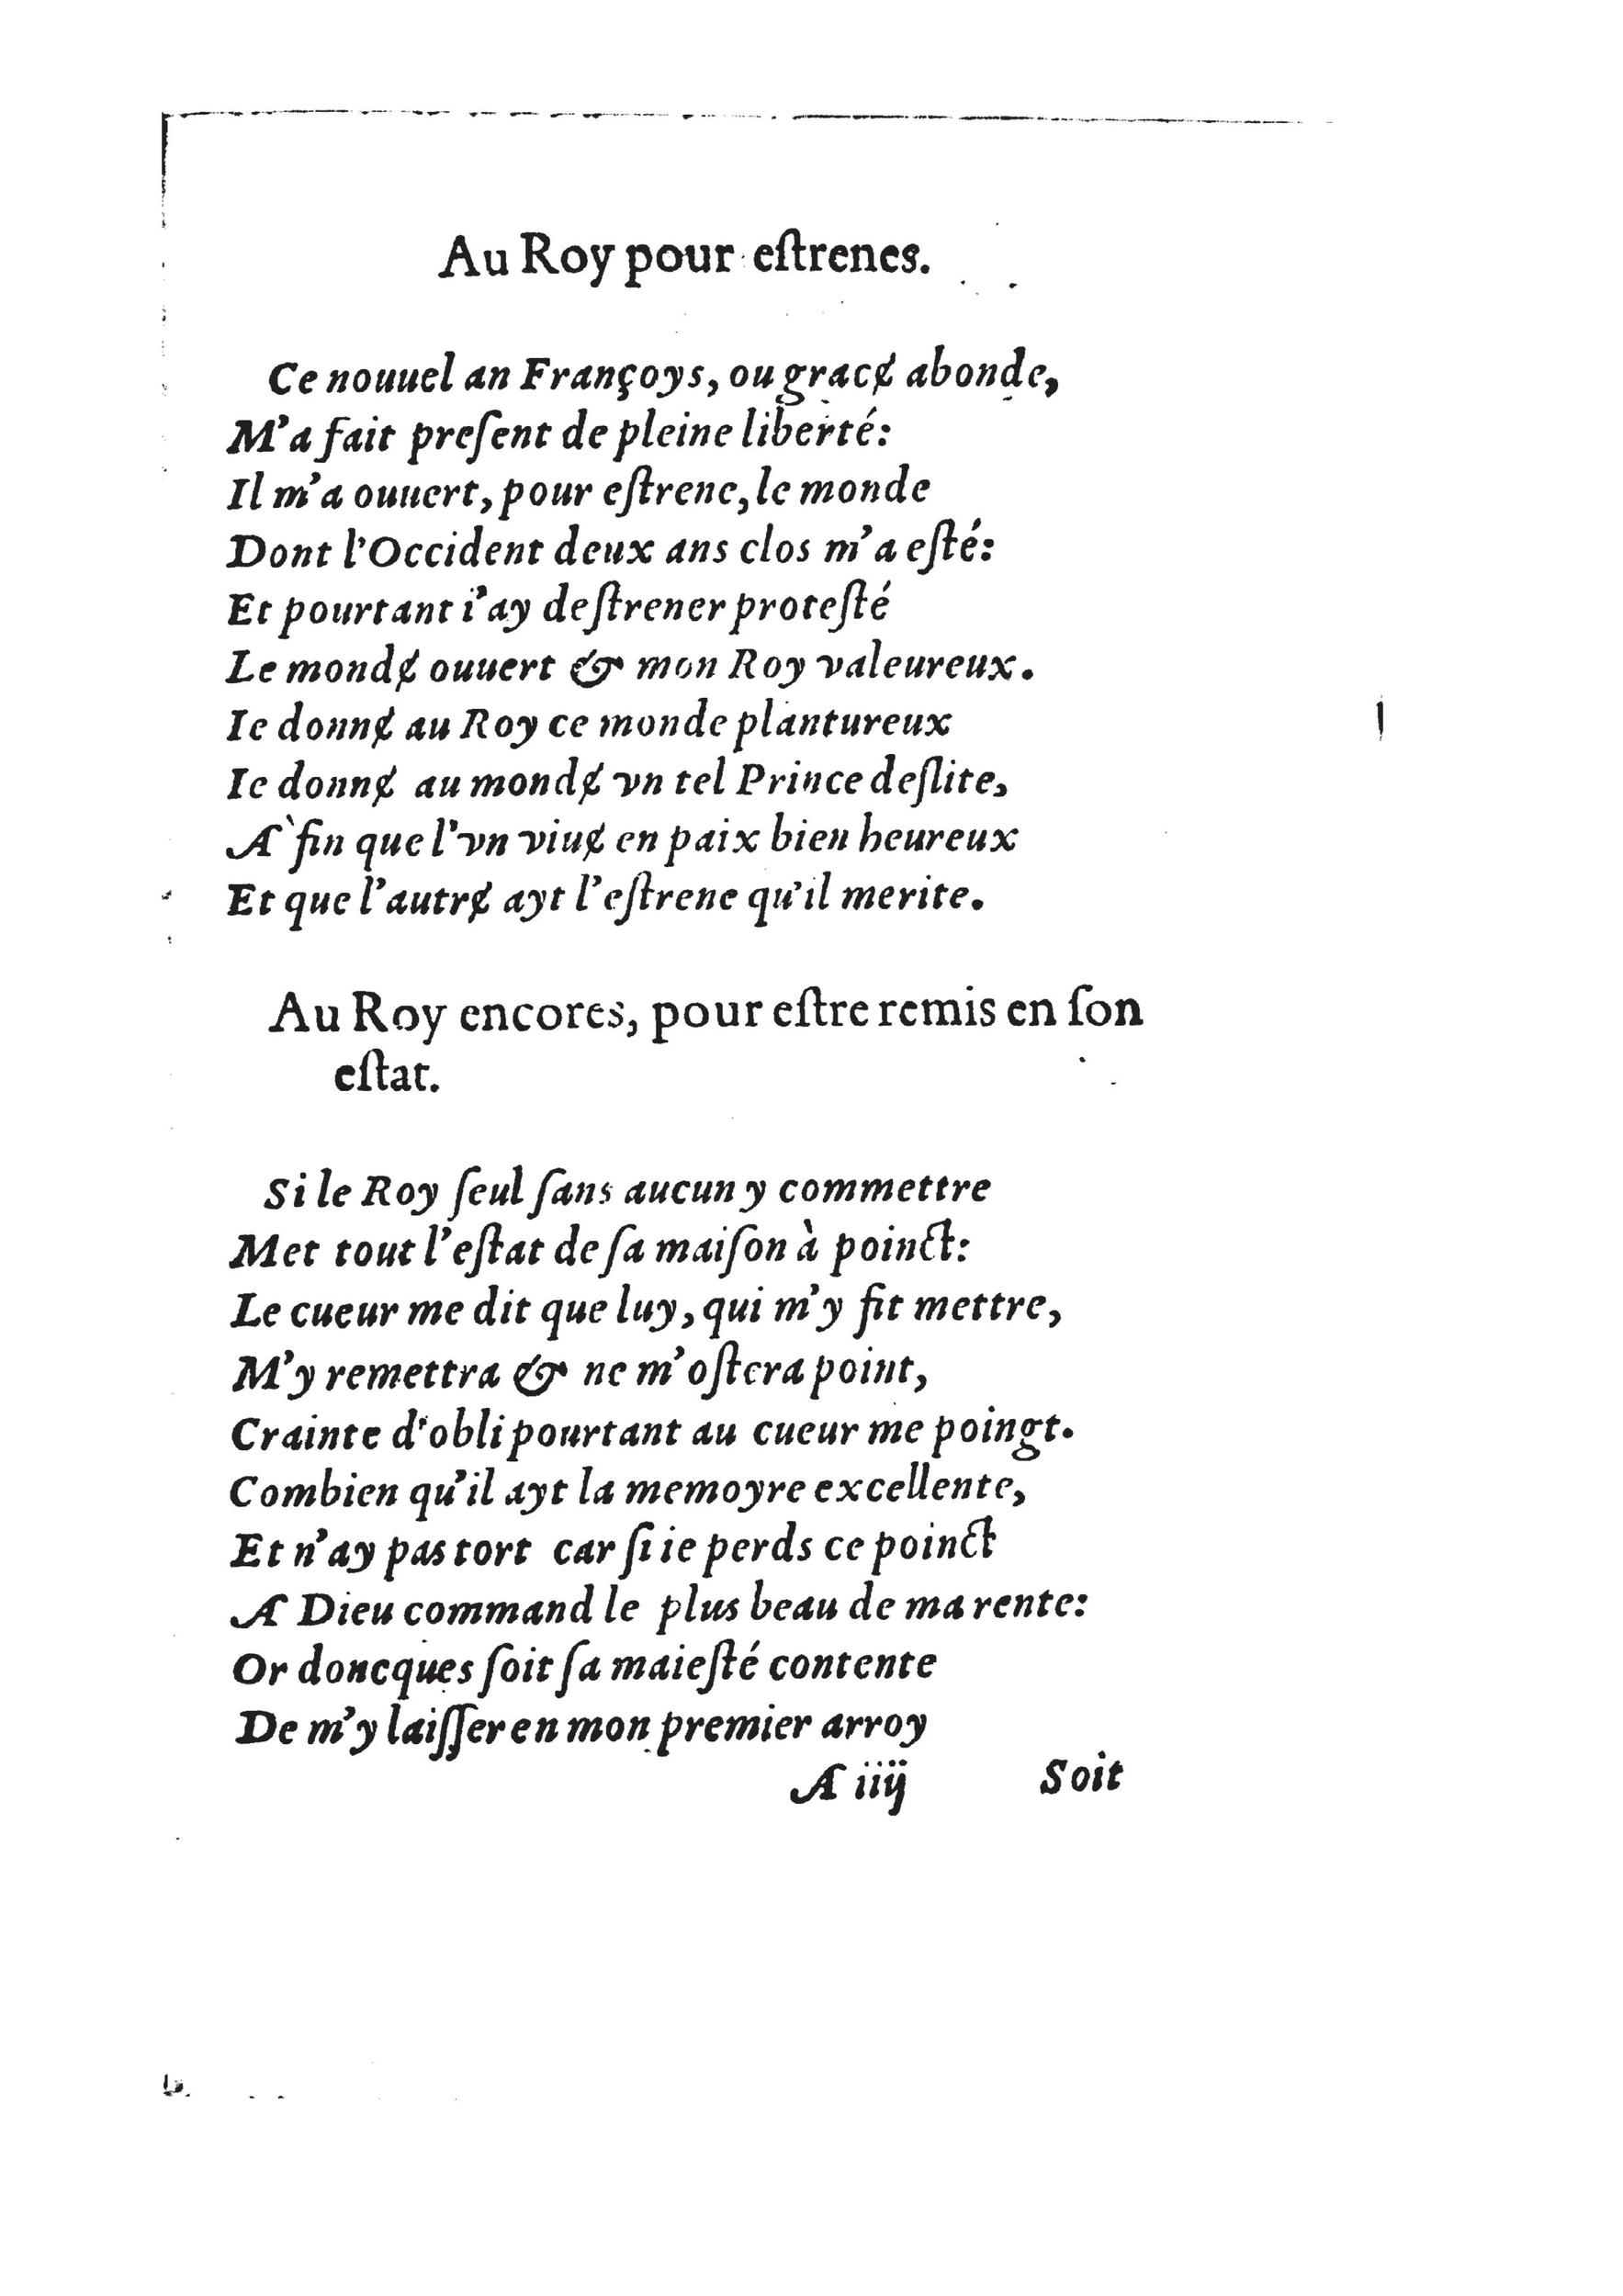 Au Roy pour eſtrenes.
Ce nouuel an Françoys, ou gracɇ abonde,
M'a fait preſent de pleine liberté:
Il m'a ouuert, pour eſtrene, le monde
Dont l'Occident deux ans clos m'a eſté:
Et pourtant i'ay deſtrener proteſté
Le mondɇ ouuert & mon Roy valeureux.
Ie donnɇ au Roy ce monde plantureux
Ie donnɇ au mondɇ vn tel Prince deſlite,
A`fin que l'vn viuɇ en paix bien heureux
Et que l'autrɇ ayt l'eſtrene qu'il merite.
Au Roy encores, pour eſtre remis en ſon
eſtat.
Si le Roy ſeul ſans aucun y commettre
Met tout l'eſtat de ſa maiſon à poinct:
Le cueur me dit que luy, qui m'y fit mettre,
M'y remettra & ne m'oſtera point,
Crainte d'obli pourtant au cueur me poingt.
Combien qu'il ayt la memoyre excellente,
Et n'ay pas tort car ſi ie perds ce poinct
A Dieu command le plus beau de ma rente:
Or doncques ſoit ſa maieſté contente
De m'y laiſſer en mon premier arroy
A iiij Soit